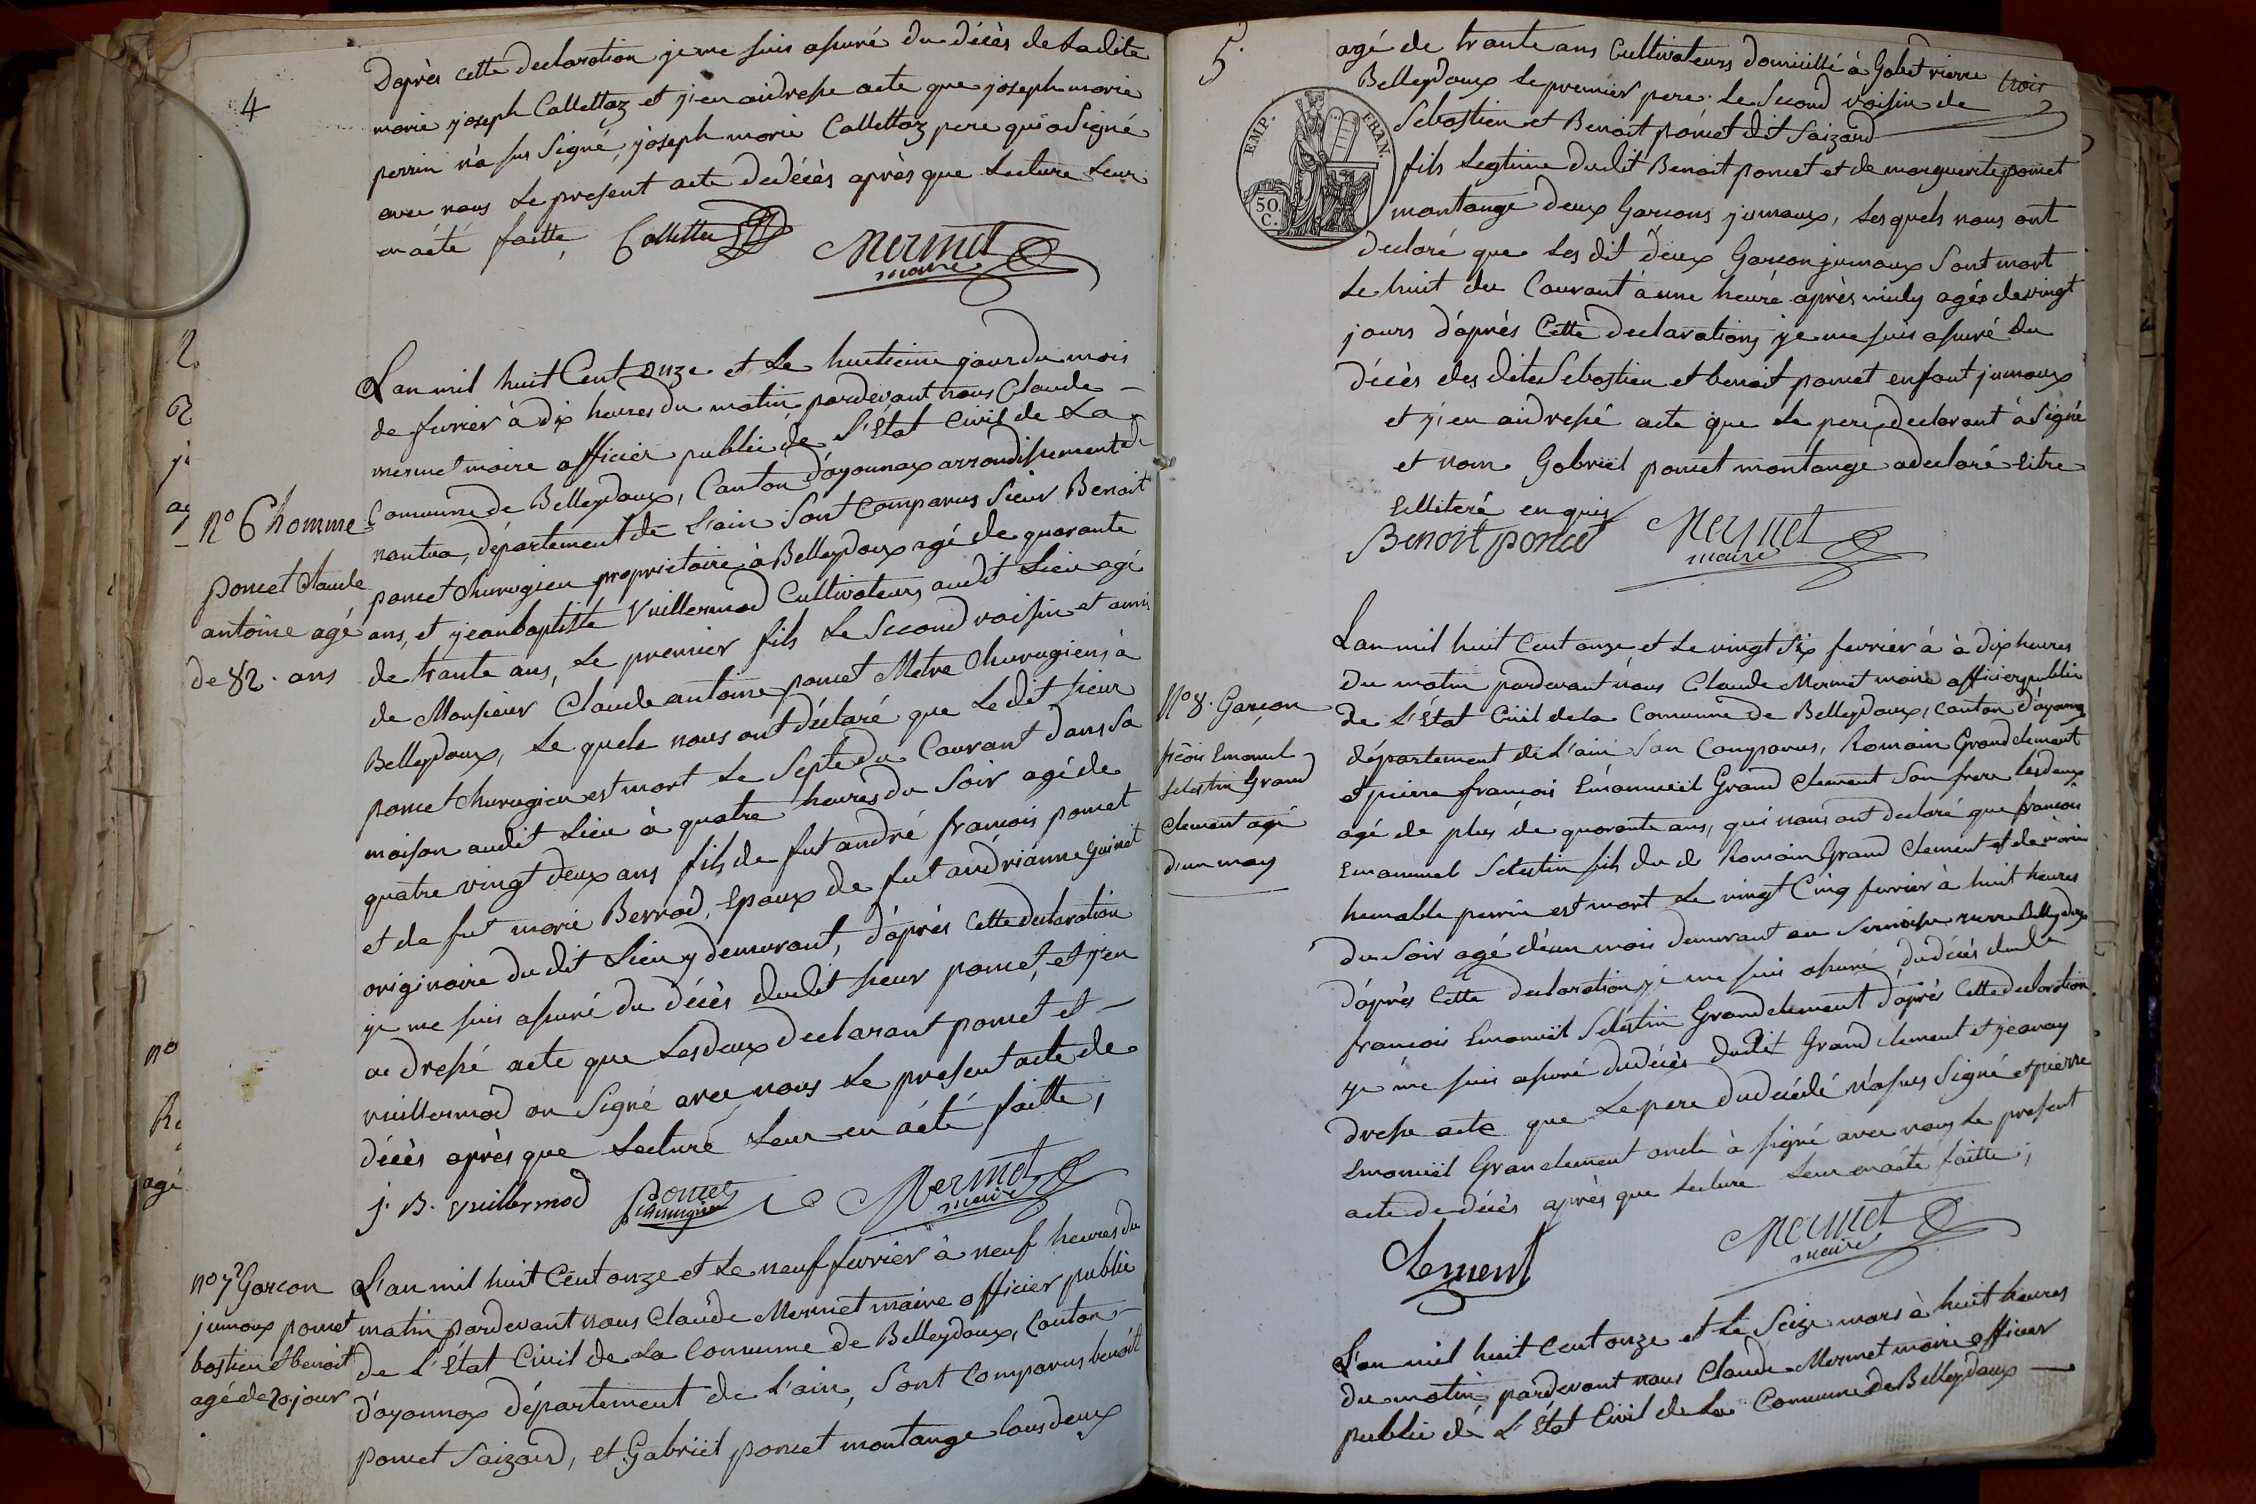 4
D'aprés cette declaration je me suis assuré du décès de Ladite
marie joseph Callettaz et j'en ai dressé acte que joseph marie
perrin n'a sus signé, joseph marie Callettaz pere qui a Signé
avec nous Le present acte dedécès après que Lecture Leur
en a été faitte, Collettaz Mermet
maire
L'an mil huit Cent onze et Le huitieme jour du mois
de fevrier à dix heures du matin, pardevant nous Claude
mermet maire officier public de L'état Civil de La
N° 6 homme
poncet Claude
antoine agé
de 82. ans
Commune de Belleydoux, Canton d'ayounax arrondissement de
nantua, département de L'ain Sont Comparus Sieur Benoit
poncet Chirugien propriétaire à Belleydoux agé de quarante
ans, et jeanbaptiste Vuillermod Cultivateurs audit Lieu agé
de trante ans, Le premier fils Le Second voisin et amis
de Monsieur Claude antoine poncet Metre Chirugiens à
Belleydoux, Le quels nous ont déclaré que Le dit sieur
poncet Chirugien est mort Le Septe du Courant dans Sa
maison audit Lieu à quatre heures du Soir agé de
quatre vingt deux ans fils de fut andré francois poncet
et de fut marie Berrod, Epoux de fut andrianne guinet
originaire du dit Lieu y demeurant, d'après Cette declaration
je me suis assuré du décès dudit sieur poncet, et j'en
ai dressé acte que Les deux declarant poncet et
vuillermod on Signé avec nous Le present acte de
décès après que Lecture Leur en a été faitte,
j. B. vuillermod Poncet Mermet
chirurgien maire
n° 7 Garcon
jumaux poncet
bastien et benoit
agé de 20 jour
L'an mil huit Cent onze et Le neuf fevrier à neuf heures du
matin pardevant nous Claude Mermet maire officier public
de L'état Civil de La Commune de Belleydoux, Canton
d'ayonnax département de L'ain, Sont Comparus benoit
poncet Saizard, et Gabriël poncet montange tous deux
5.
trois
EMP. FRAN.
50 C.
agé de trante ans Cultivateurs domicillié à Gobet rierre
Belleydoux Le premier pere Le Second voisin de
Sebastien et Benoit poncet dit Saizard
fils Legtime dudit Benoit poncet et de marguerite poncet
montange deux Garcons jumaux, Lesquels nous ont
declaré que Les dit deux Garcon jumaux Sont mort
Le huit du Courant à une heure après midy agés de vingt
jours d'après Cette declarations je me suis assuré du
décès des dites Sebastien et benoit poncet enfant jumaux
et j'en ai dressé acte que Le pere declarant à Signé
et nom Gabriël poncet montange a declaré Eitre
Illiteré enquis
Benoit poncet Mermet
maire
N° 8. Garcon
Emanuel
Selestin Grand
Clement agé
d'un moy
L'an mil huit Cent onze et Le vingt Six fevrier à à dix heures
du matin pardevant nous Claude Mermet maire officier public
de L'État Civil de La Commune de Belleydoux, canton d'ayonnax
département de L'ain Son Comparus, Romain Grandclement
et pierre françois Emanuëil Grand Clement Son frere Les deux
agé de plus de quarante ans, qui nous ont declaré que francois
Emanuel Selestin fils du d. Romain Grand Clement et de marie
humable perrin est mort Le vingt Cinq fevrier à huit heures
du Soir agé d'un mois demeurant au rierre Belleydoux
d'après Cette declaration je me suis assuré du décès dudit
francois Emanuël Selestin Grandclement d'après Cette declaration
je me suis assuré du décès dudit Grand clement et j'en ay
dressé acte que Le pere du décédé n'a sus Signé et pierre
Emanuël Granclement oncle à signé avec nous Le present
acte de décès après que Lecture Leur en a été faitte,
Clement Mermet
maire
L'an mil huit Cent onze et Le Seize mars à huit heures
du matin, pardevant nous Claude Mermet maire officier
public de L'État Civil de La Commune de Belleydoux